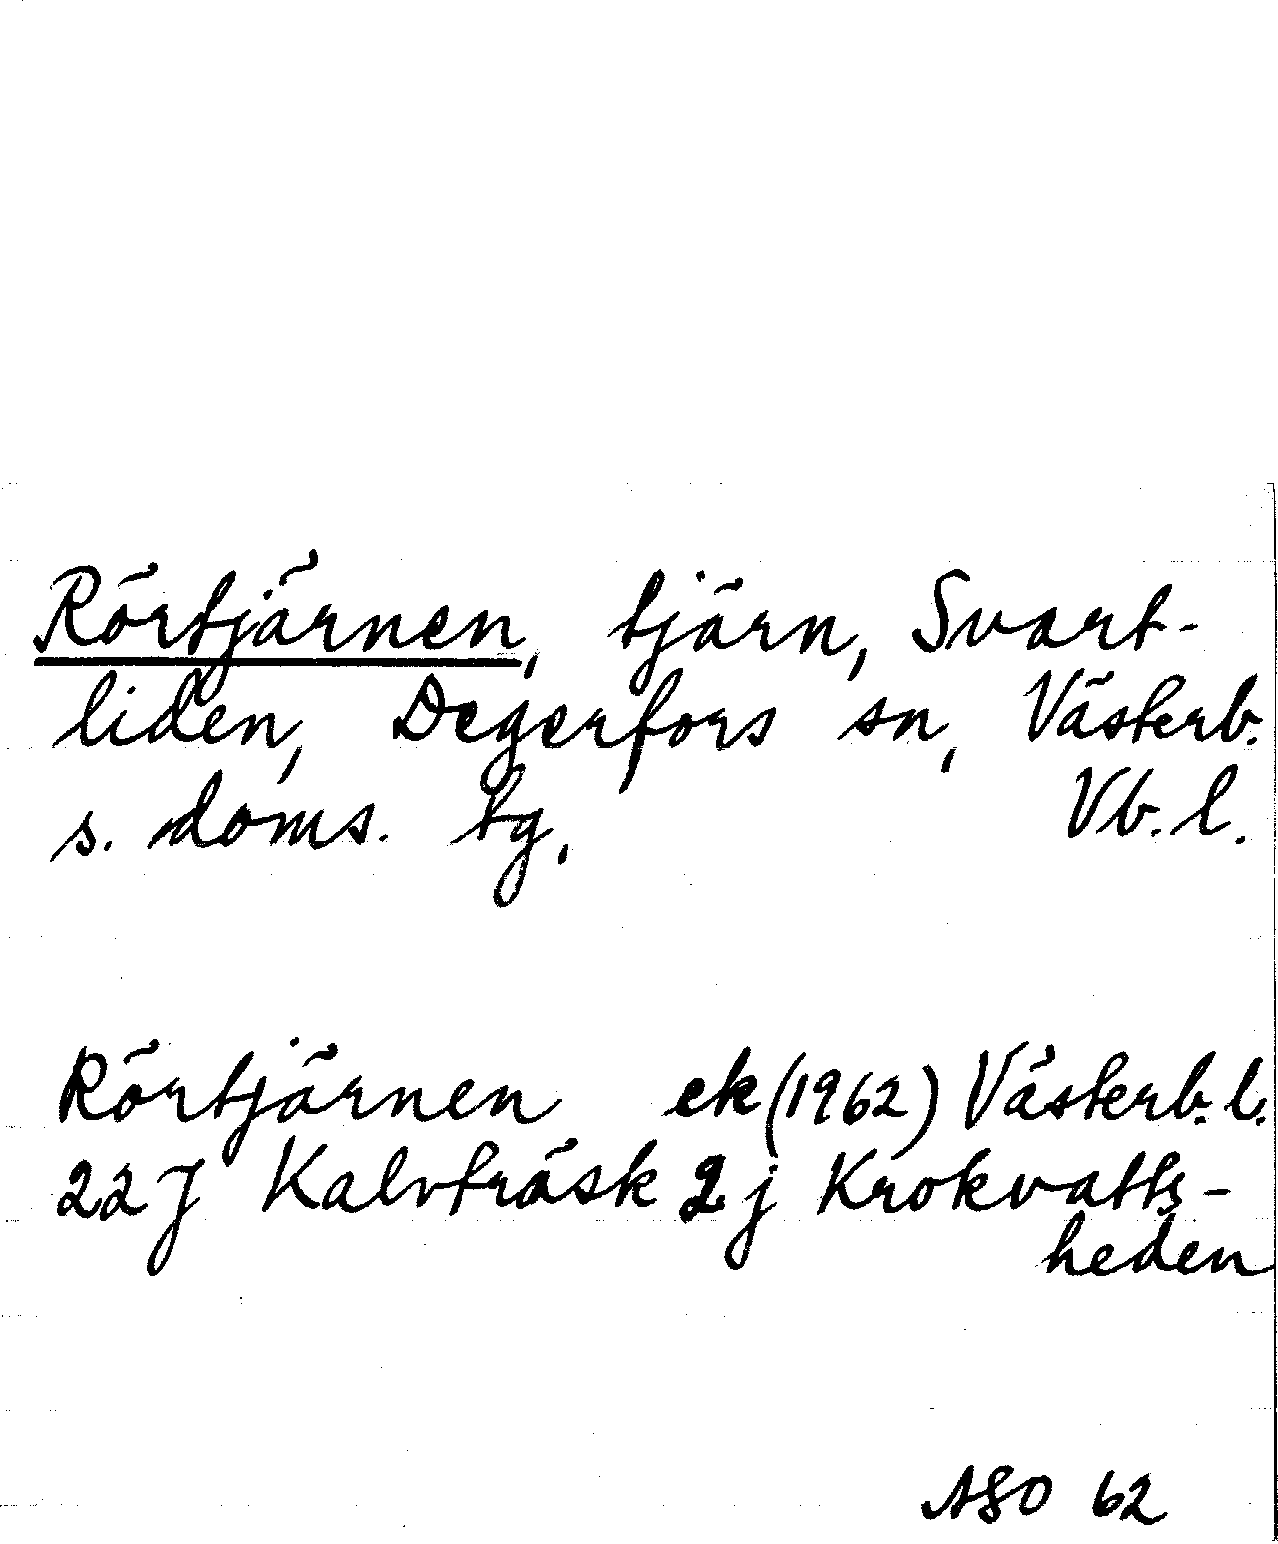 Rörtjärnen, tjärn, Svart-
liden, Degerfors sn, Västerb.
s. doms. tg. Vb. l.
Rörtjärnen ek (1962) Västerb. l.
22 J Kalvträsk 2 j Krokvatts-
heden
ASO 62